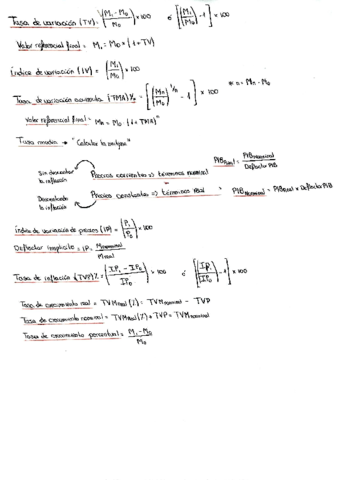 Tasa de variación (TV): (M₁ - M₀ / M₀) × 100 ó [(M₁/M₀) - 1] × 100
Valor referencial final = M₁ = M₀ * (1 + TV)
Índice de variación (IV) = (M₁/M₀) × 100
Tasa de variación (TMA) % = [(Mn/M₀)^1/n - 1] × 100 * n = Mn - M₀
Valor referencial final = Mn = M₀ · (1 + TMA)ⁿ
Tasa media → "Calcular la antigua"
Sin descontar la inflación Precios corrientes => términos nominal PIB Real = PIB nominal / Deflactor PIB
Descontando la inflación Precios constantes => términos real PIB Nominal = PIB real × Deflactor PIB
Índice de variación de precios (IP) = (P₁/P₂) × 100
Deflactor implícito = IP = M nominal / M real
Tasa de inflación (TVP) % = (IP₁ - IP₀ / IP₀) × 100 ó [(IP₁/IP₀) - 1] × 100
Tasa de crecimiento real = TVM real (%) = TVM nominal - TVP
Tasa de crecimiento nominal = TVM real (%) + TVP = TVM nominal
Tasa de crecimiento porcentual = M₁ - M₀ / M₀